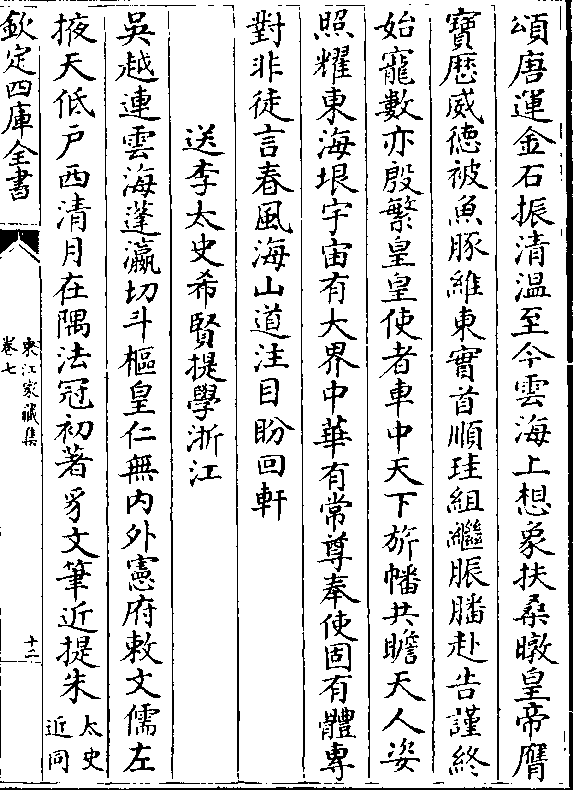 頌唐運金石振清溫至今雲海上想象扶桑暾皇帝膺
寶歴威德被魚豚維東實首順珪組繼脤膰赴告謹終
始寵數亦殷繁皇皇使者車中天下旂幡共瞻天人姿
照耀東海垠宇宙有大界中華有常尊奉使固有體專
對非徒言春風海山道注目盼回軒
送李太史希賢提學浙江
吳越連雲海蓬瀛切斗樞皇仁無内外憲府敕文儒左
掖天低戶西清月在隅法冠初著豸文筆近提朱太史
近同
欽定四庫全書
東江家藏集
卷七
十二